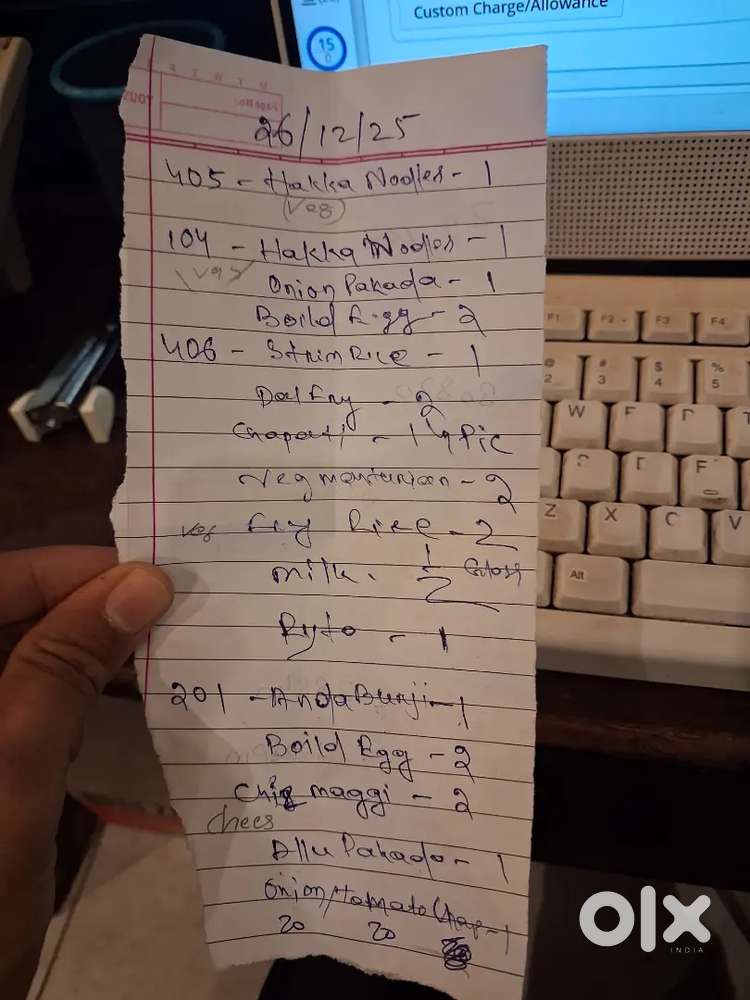 Custom Charge/Allowance
15
0
26/12/25
405 - Hakka Nodles - 1
(veg)
104 - Hakka Nodles - 1
(veg)
Onion Pakada - 1
Boild Egg - 2
406 - Strim Rice - 1
Dal Fry - 2
Chapati - 14 Pic
Veg manturian - 2
veg Fry Rice - 2
milk. 1/2 Glass
Ryto - 1
201 - Anda Burji - 1
Boild Egg - 2
maggi - 2
chees
Allu Pakado - 1
Onion/tamato - 1
20 20
F1 F2 F3 F4
@ 2 # 3 $ 4 % 5
W
F
Z X C V
Alt
olx
INDIA